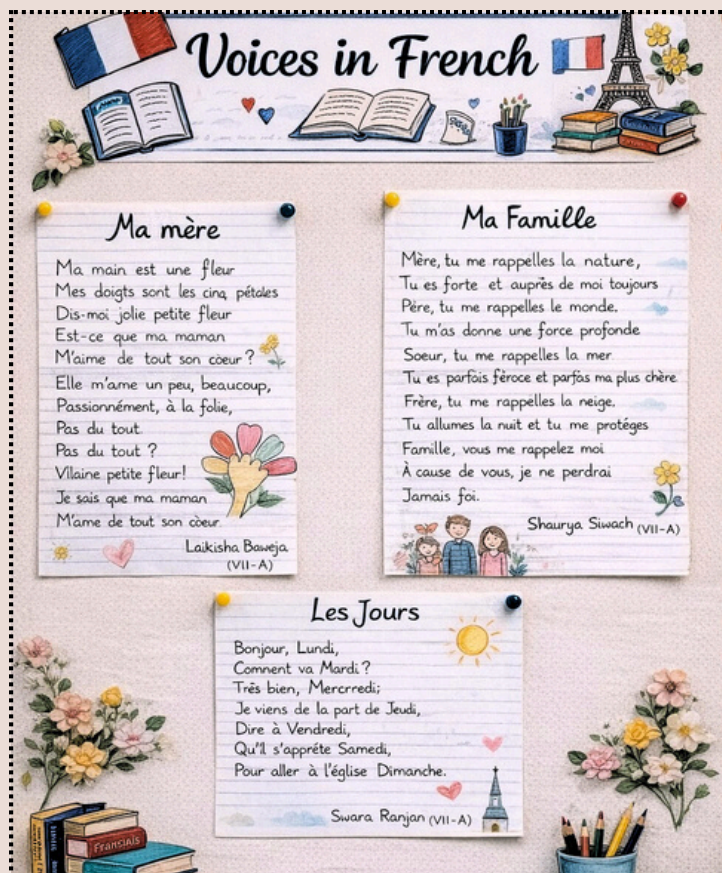 Voices in French
Ma mère
Ma main est une fleur
Mes doigts sont les cinq pétales
Dis-moi jolie petite fleur
Est-ce que ma maman
M'aime de tout son cœur?
Elle m'ame un peu, beaucoup,
Passionnément, à la folie,
Pas du tout.
Pas du tout ?
Vilaine petite fleur!
Je sais que ma maman
M'ame de tout son cœur.
Laikisha Baweja
(VII-A)
Ma Famille
Mère, tu me rappelles la nature,
Tu es forte et auprès de moi toujours
Père, tu me rappelles le monde.
Tu m'as donne une force profonde
Soeur, tu me rappelles la mer.
Tu es parfois féroce et parfos ma plus chère
Frère, tu me rappelles la neige.
Tu allumes la nuit et tu me protéges
Famille, vous me rappelez moi
À cause de vous, je ne perdrai
Jamais foi.
Shaurya Siwach (VII-A)
Les Jours
Bonjour, Lundi,
Comnent va Mardi?
Três bien, Mercrredi;
Je viens de la part de Jeudi,
Dire à Vendredi,
Qu'il s'appréte Samedi,
Pour aller à l'église Dimanche.
Swara Ranjan (VII-A)
Fransiais